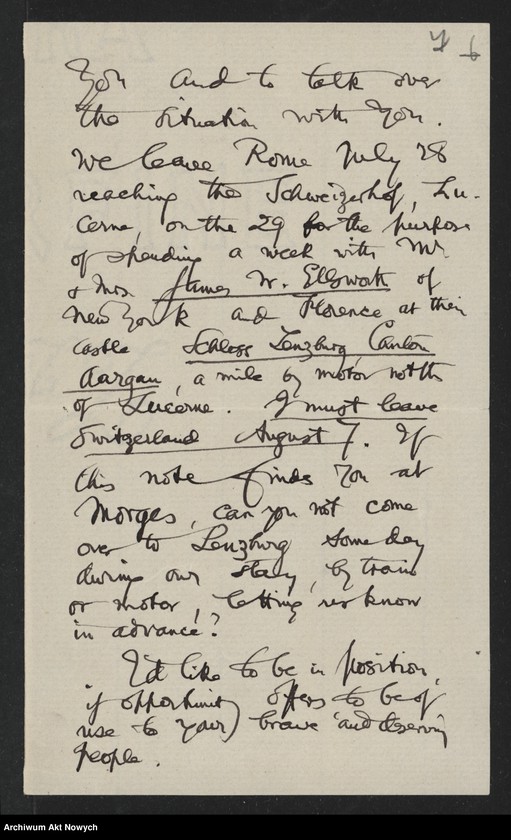 You and to talk over
the situation with you.
We leave Rome July 28
reaching the Schweizerhof, Lu-
cerne, on the 29 for the purpose
of spending a week with Mr.
& Mrs. James W. Ellsworth of
New York and Florence at their
castle Schloss Lenzburg, Canton
Aargau, a mile by motor north
of Lucerne. I must leave
Switzerland August 7. If
this note finds you at
Morges, can you not come
over to Lenzburg some day
during our stay, by train
or motor, letting us know
in advance?
I'd like to be in position,
if opportunity offers to be of
use to your brave and deserving
people.
Archiwum Akt Nowych